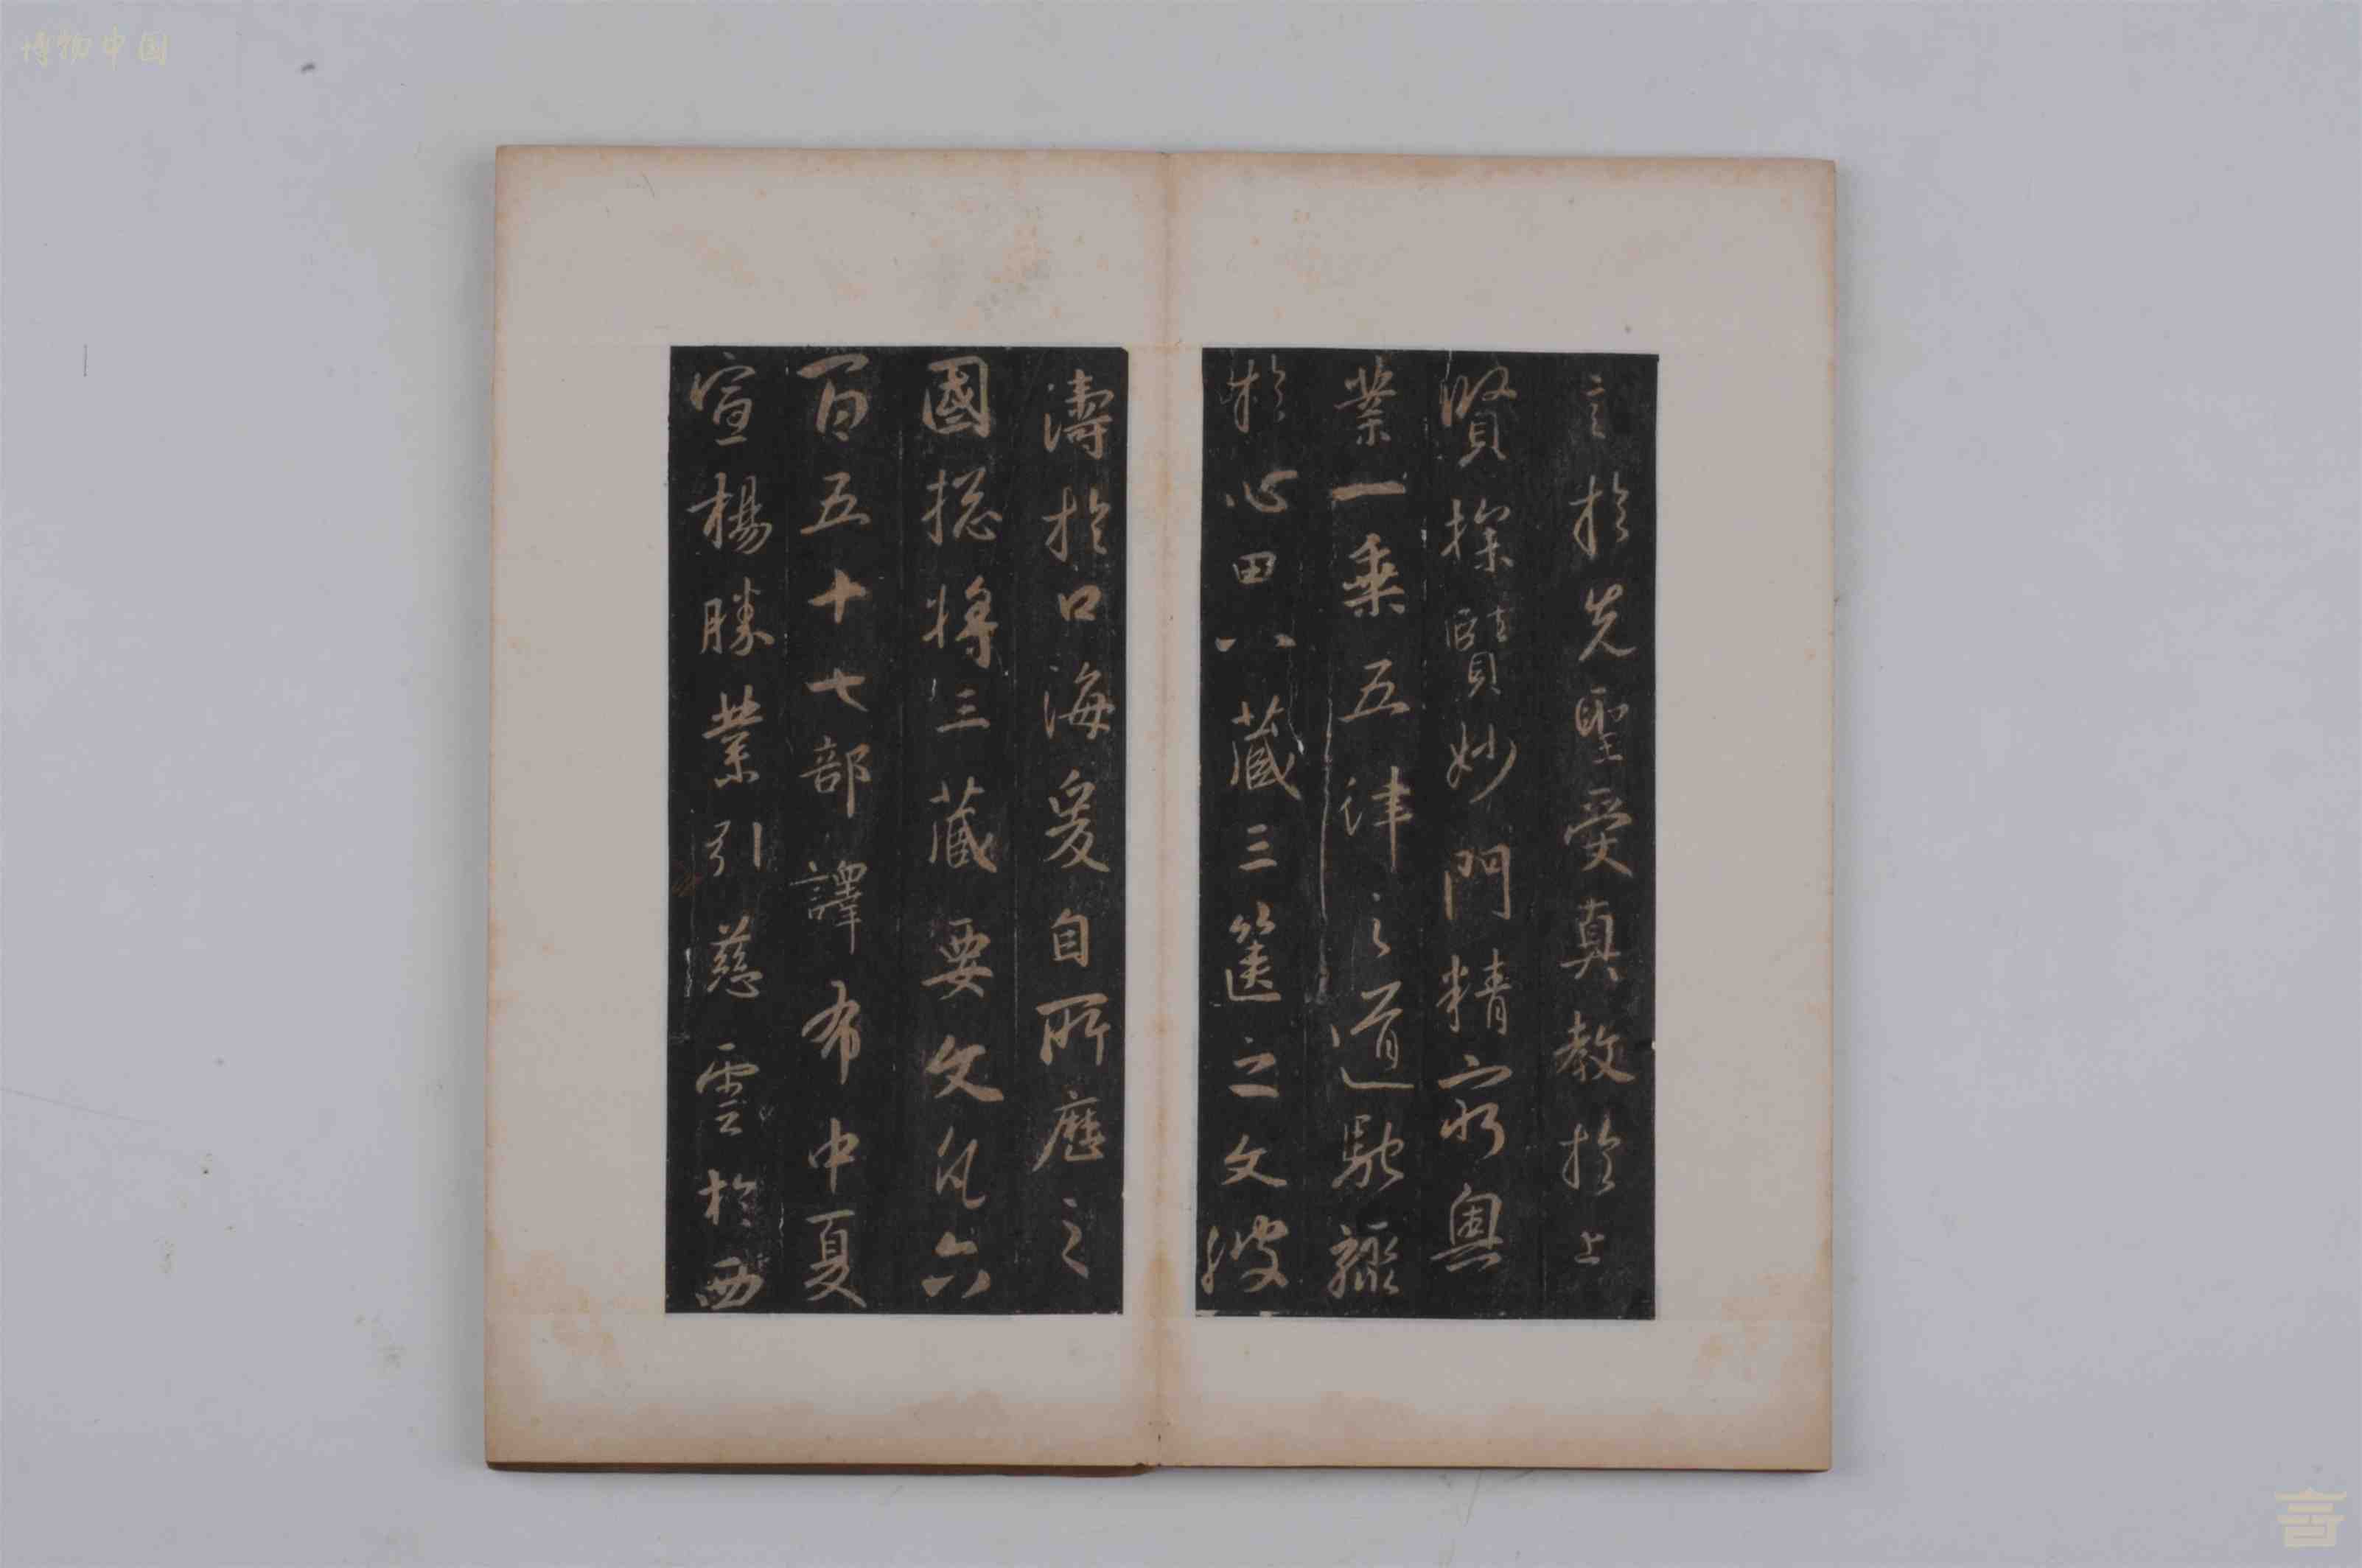 博物中国
言於先聖受真教於上
賢探賾妙門精窮奧
業一乘五律之道馳驟
於心田八藏三篋之文波
濤於口海爰自所歷之
國捴將三藏要文凡六
百五十七部譯布中夏
宣楊勝業引慈雲於西